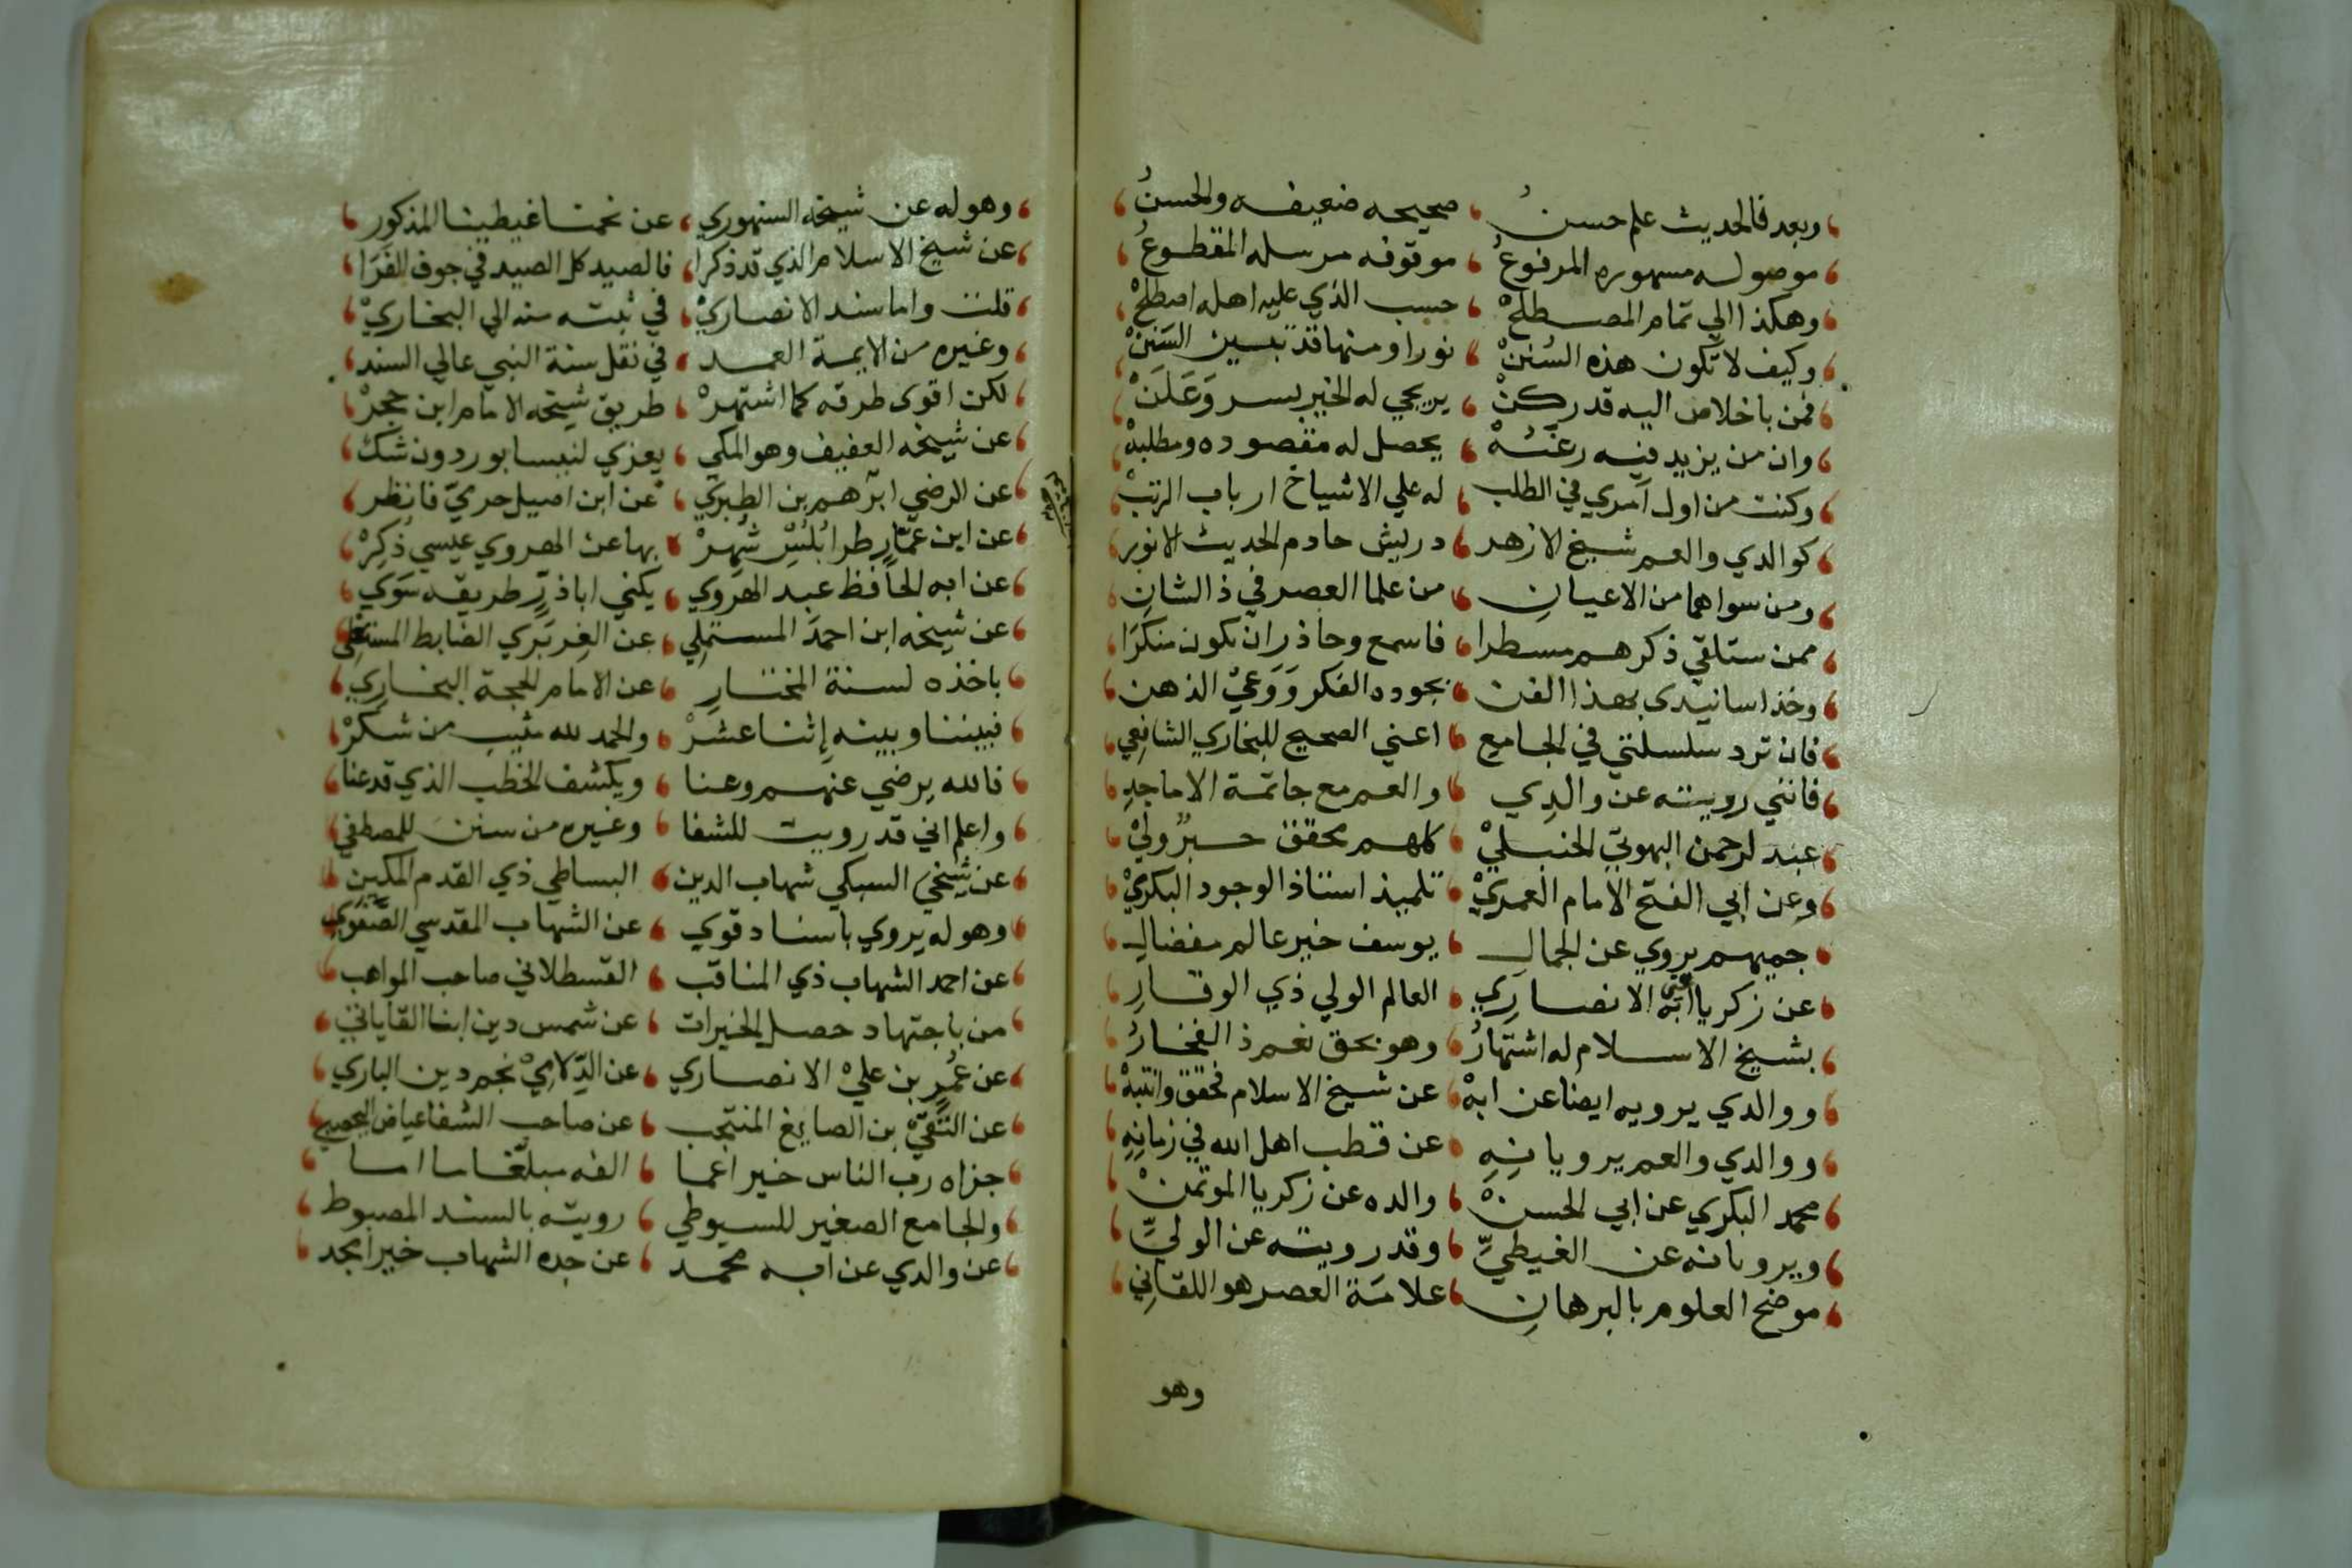 وبعد فالحديث علم حسنُ صحيحه ضعيفه والحسنُ
موصوله مشهوره المرفوعُ موقوفه مرسله المقطوعُ
وهكذا الي تمام المصطلحْ حسب الذي عليه اهله اصطلحْ
وكيف لا تكون هذه السُننْ نورا ومنها قد تبين السَنَنْ
فمن باخلاص اليه قد ركنْ يرتجي له الخير بسر وَعَلَنْ
وان من يزيد فيه رغبتهْ يحصل له مقصوده ومطلبهْ
وكنت من اول امري في الطلب له علي الاشياخ ارباب الرتبْ
كوالدي والعم شيخ الازهر درييش خادم الحديث الانور
ومن سواهما من الاعيانِ من علما العصر في ذا الشانِ
ممن ستلقي ذكرهم مسطرا فاسمع وحاذر ان تكون منكرَا
وخذ اسانيدى بهذا الفن بجوده الفكر وَوَعيْ الذهن
فان ترد سلسلتي في الجامع اعني الصحيح للبخاري الشافعي
فانني رويته عن والدِي والعم مع خاتمة الاماجدِ
عبد الرحمن البهوتي الحنبليْ كلهم محقق حبرٌ وليْ
وعن ابي الفتح الامام العمريْ تلميذ استاذ الوجود البكريْ
جميعهم يروي عن الجمالِ يوسف خير عالم مفضالِ
عن زكريا ابه الانصارِي العالم الولي ذي الوقارِ
بشيخ الاسلام له اشتهارُ وهو بحق نعم ذ الفخارُ
ووالدي يرويه ايضا عن ابهْ عن شيخ الاسلام فحقق وانتبهْ
ووالدي والعم يرويانِهِ عن قطب اهل الله في زمانِهِ
محمد البكري عن ابي الحسنْ والده عن زكريا الموتمنْ
ويرويانه عن الغيطيِّ وقد رويته عن الوليِّ
موضح العلوم بالبرهانِ علامَة العصر هو اللقانِي
وهو
وهو له عن شيخه السنهوري عن نجمنا غيطينا المذكور
عن شيخ الاسلام الذي قد ذكرا فالصيد كل الصيد في جوف الفَرَا
قلت واما سند الانصاريْ في ثبته منه الي البخاريْ
وغيره من الايمة العمد في نقل سنة النبي عالي السند
لكن اقوى طرقه كما اشتهرْ طريق شيخه الامام ابن حجرْ
عن شيخه العفيف وهو المكي يعزي لنيسابور دون شك
عن الرضي ابرهيم بن الطبري عن ابن امبيل حرميّ فانظر
عن ابن عمّارٍ طرابُلُسِّ شُهِرْ بها عن الهروي عيسي ذُكِرْ
عن ابه الحافظ عبد الهَروي يكني اباذرٍّ طريقه سَوَي
عن شيخه ابن احمدَ المستملِي عن الفِربَري الضابط
باخذه لسنة المختارِ عن الامام الحجة البخارِي
فبيننا وبينه إثنا عشَرْ والحمد لله يثيب من شكَرْ
فالله يرضي عنهم وعنا ويكشف الخطب الذي قد عنا
واعلم اني قد رويت للشفا وغيره من سنن للمصطفي
عن شيخي السبكي شهاب الدين البساطي ذي القدم المكين
وهو له يروي باسناد قوي عن الشهاب المقدسي الصَّفَوي
عن احمد الشهاب ذي المناقب القسطلاني صاحب المواهب
من باجتهاد حصل الخيرات عن شمس دين ابنا القاياتي
عن عُمرٍ بن عليْ الانصاري عن الدِّلاصِيْ نجم دين الباري
عن التَّقيّ بن الصايغ المنتجب عن صاحب الشفا عياض اليحصبي
جزاه رب الناس خير اعما الفه مبلّغا ما اما
والجامع الصغير للسيوطي رويته بالسند المضبوط
عن والدي عن ابه محمد عن جده الشهاب خير امجد